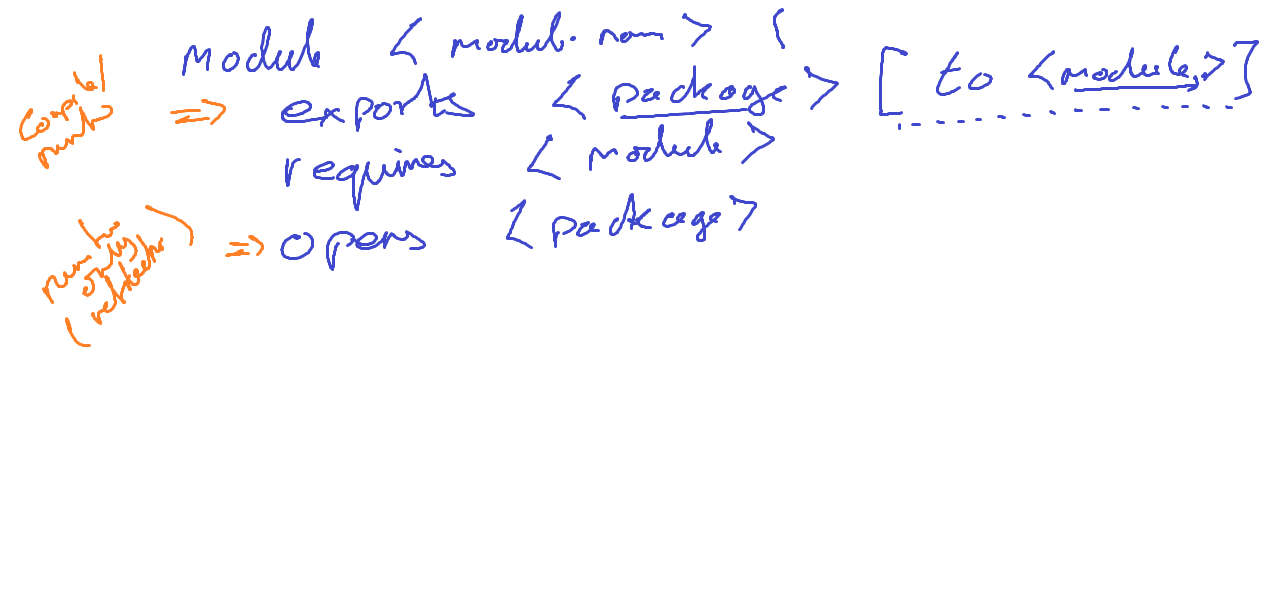 module < module name > {
Compile/ runtime => exports < package > [ to < module,> ]
requires < module >
runtime only (reflection) => opens < package >